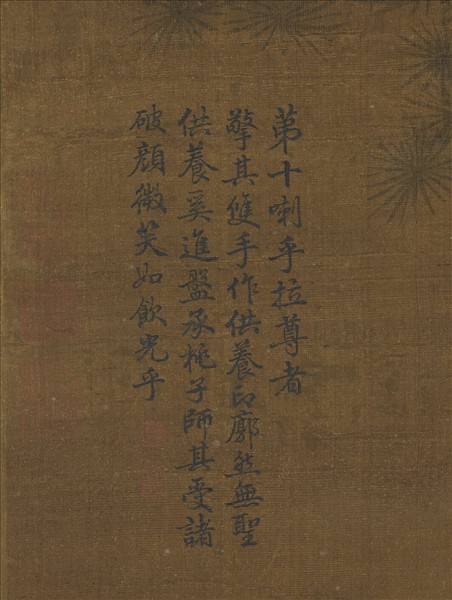 第十喇乎拉尊者
擎其雙手作供養印廓然無聖
供養奚進盤承桃子師其受諸
破顏微笑如飲光乎